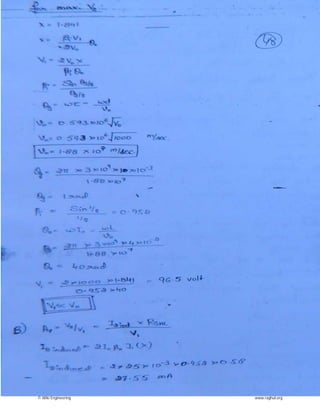 for max. V2
48
X = 1.841
X = βi V1 / 2V0 θ0
V1 = 2V0 X / βi θ0
βi = Sin θg/2 / θg/2
θg = ωτ = ωd / U0
U0 = 0.593 × 10⁶ √V0
U0 = 0.593 × 10⁶ √1000 m/sec.
U0 = 1.88 × 10⁷ m/sec.
θg = 2π × 3 × 10⁹ × 10 × 10⁻³ / 1.88 × 10⁷
θg = 1 rad
βi = Sin 1/2 / 1/2 = 0.952
θ0 = ωT0 = ωL / U0
θ0 = 2π × 3 × 10⁹ × 4 × 10⁻² / 1.88 × 10⁷
θ0 = 40 rad
V1 = 2 × 1000 × 1.841 / 0.952 × 40 = 96.5 volt
V1 << V0
B) Av = V2/V1 = I2ind × Rshe / V1
I2 induced = 2 I0 β0 J1(X)
I2induced = 2 × 25 × 10⁻³ × 0.952 × 0.58
= 27.55 mA
© Wiki Engineering
www.raghul.org